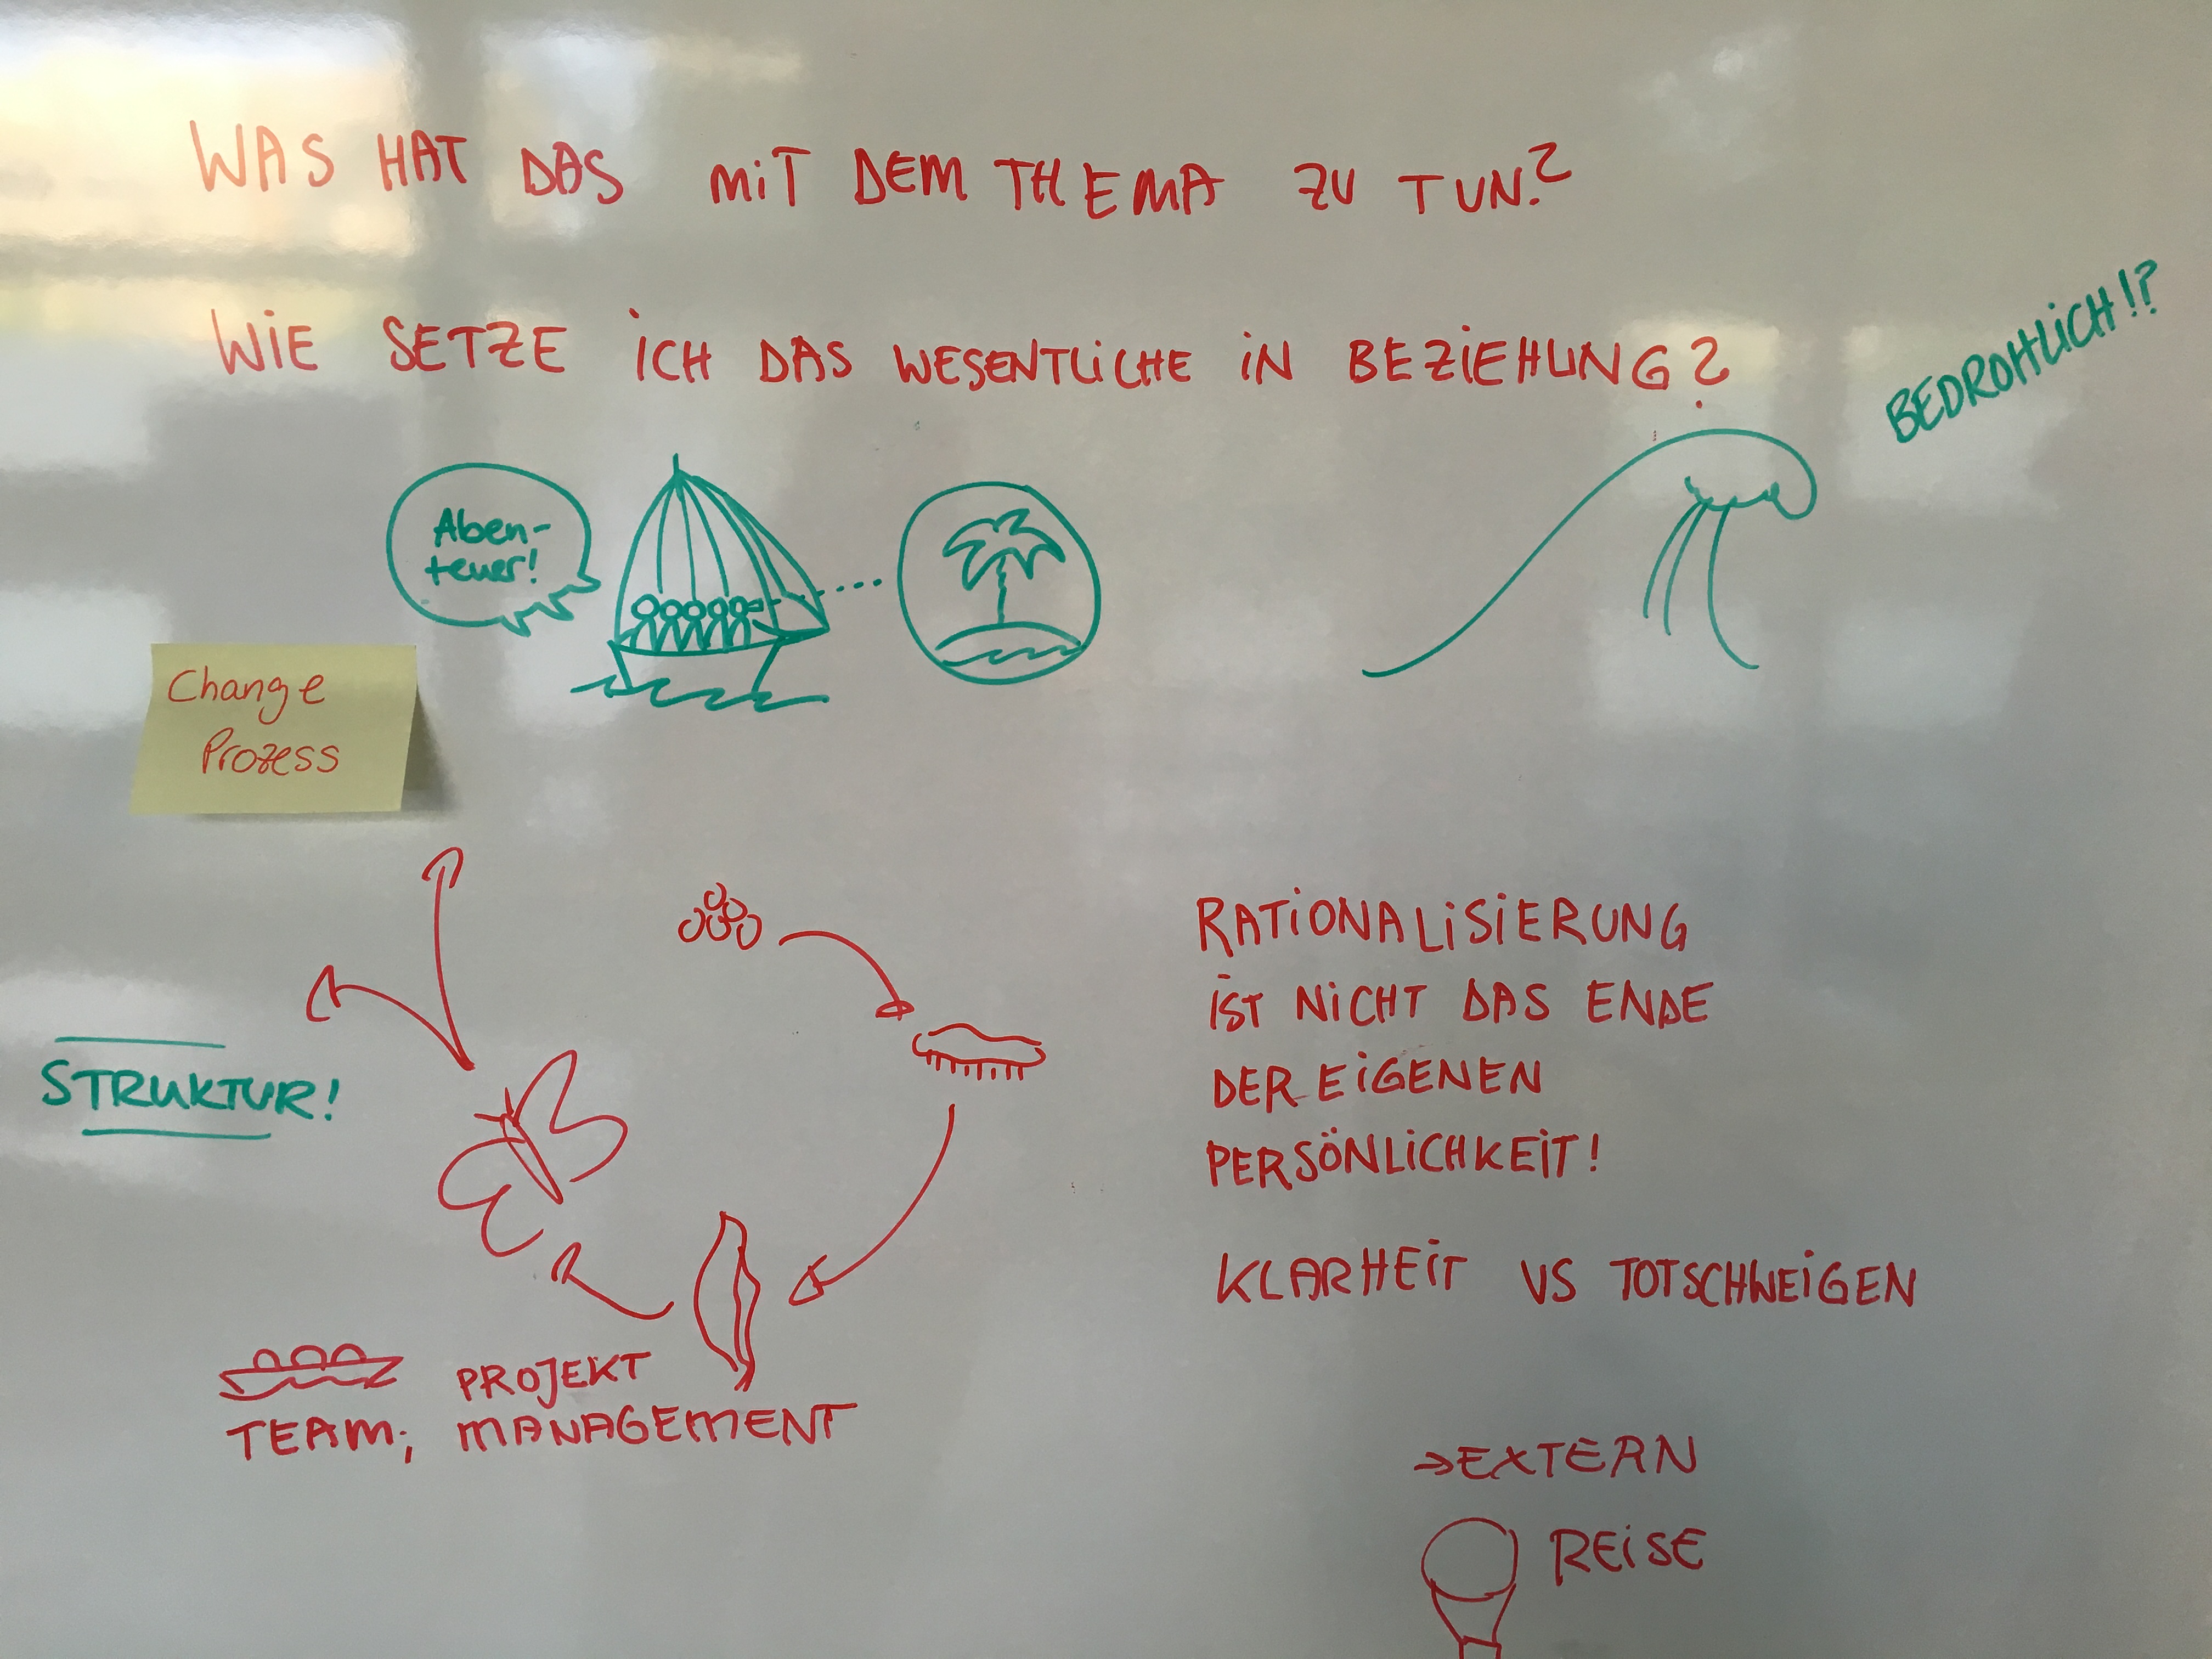 WAS HAT DAS MiT DEM THEMA ZU TUN?
WiE SETZE iCH DAS WESENTLiCHE iN BEZiEHUNG?
BEDROHLiCH!?
Aben-
teuer!
Change
Prozess
STRUKTUR!
RATiONALiSiERUNG
iST NiCHT DAS ENDE
DER EiGENEN
PERSÖNLiCHKEiT!
KLARHEiT VS TOTSCHWEiGEN
PROJEKT
TEAM; MANAGEMENT
→EXTERN
REiSE